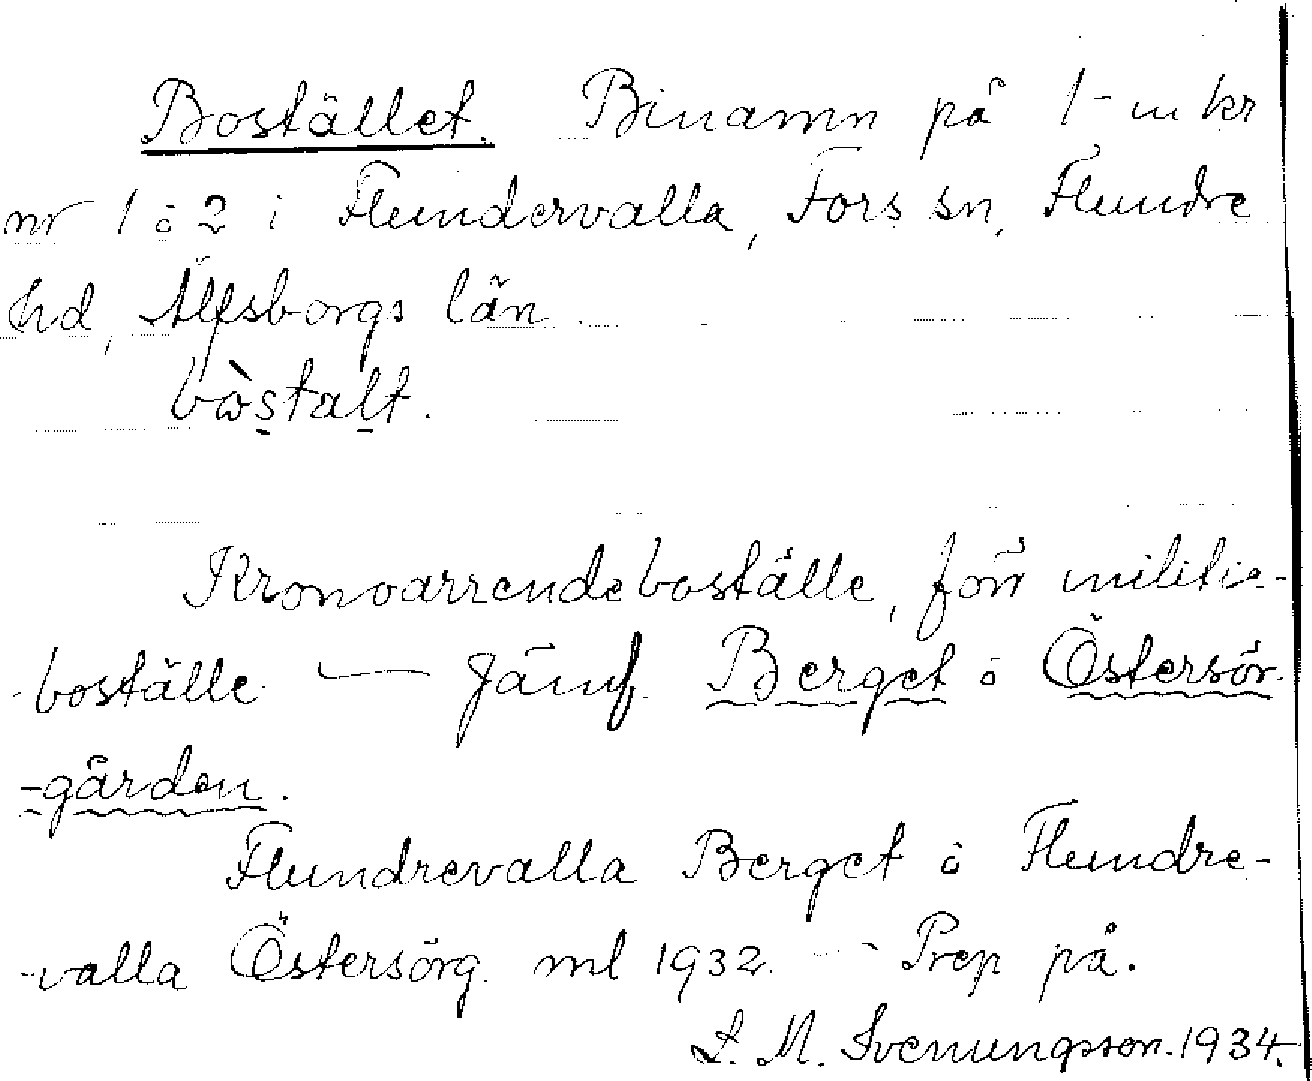 Bostället. Binamn på 1 m kr
nr 1 å 2 i Flundervalla, Fors sn, Flundre
hd, Älfsborgs län
bòstalt.
Kronoarrendeboställe, förr militie-
boställe — Jämf. Berget å Östersör-
-gården.
Flundrevalla Berget å Flundre-
-valla Östersörg. ml 1932. — Prep på.
L. M. Svenungsson. 1934.